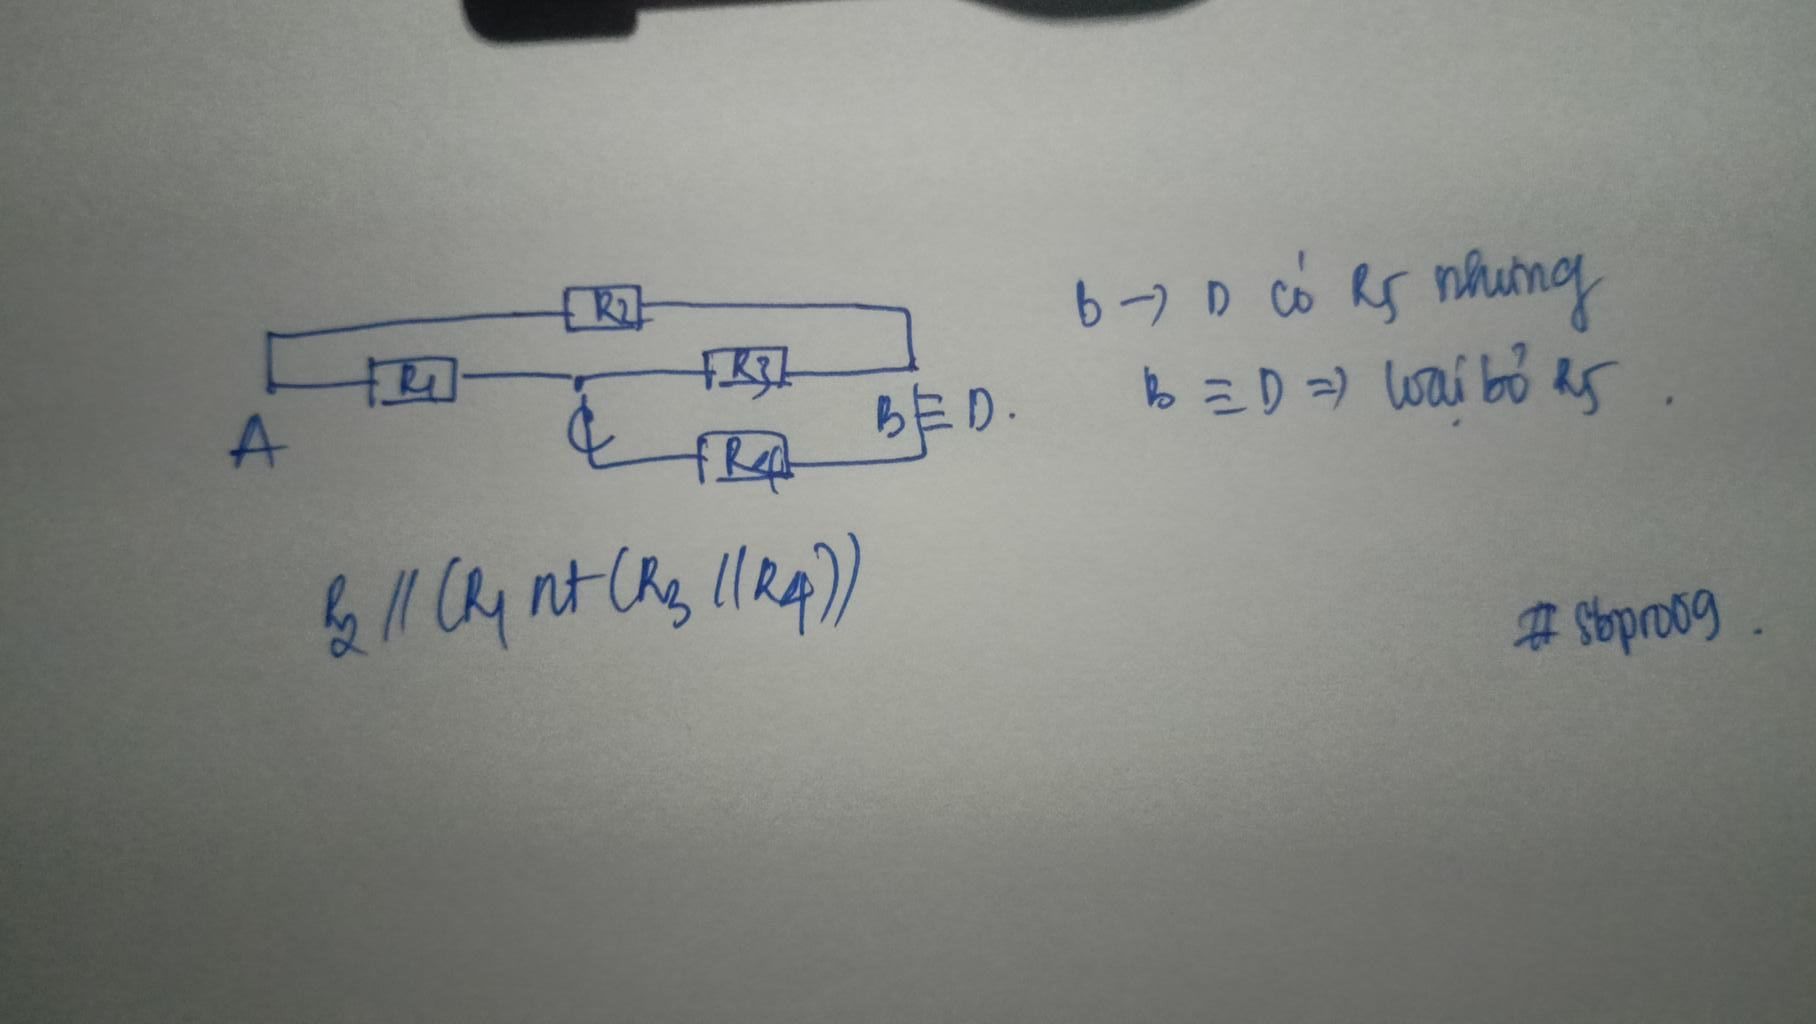 R2
R1
R3
A
C
B ≡ D.
R4
B → D có R5 nhưng
B ≡ D => loại bỏ R5.
R2 // (R1 nt (R3 // R4))
# sbpro09.